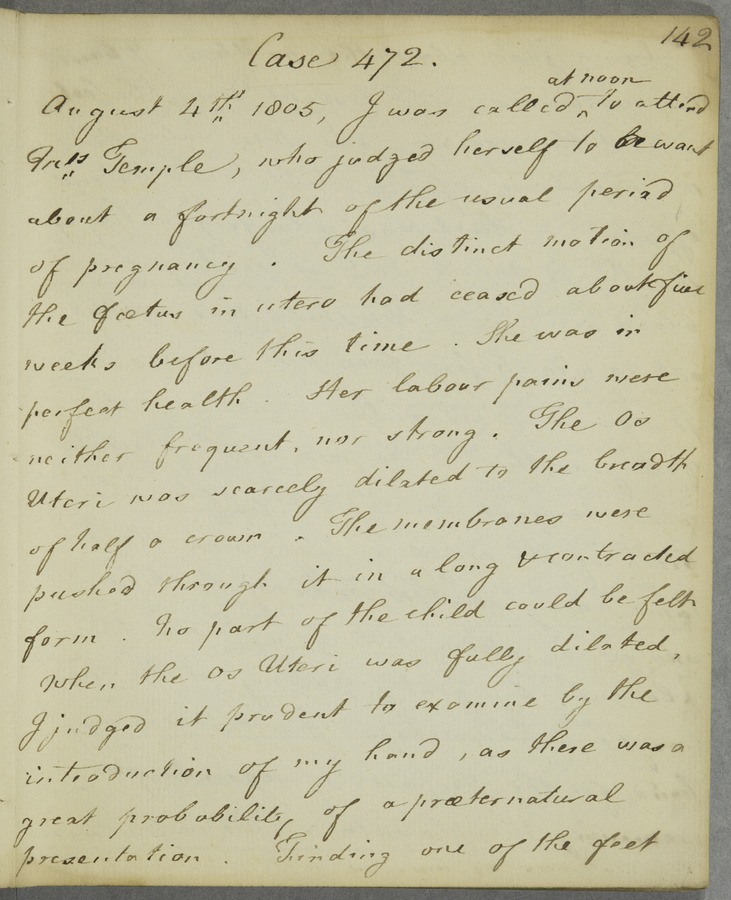 142
Case 472.
at noon
August 4th 1805, I was called ^ to attend
Mrs Temple, who judged herself to be want
about a fortnight of the usual period
of pregnancy. The distinct motion of
the foetus in utero had ceased about five
weeks before this time. She was in
perfect health. Her labour pains were
neither frequent, nor strong. The Os
Uteri was scarcely dilated to the breadth
of half a crown. The membranes were
pushed through it in a long & contracted
form. No part of the child could be felt
When the Os Uteri was fully dilated,
I judged it prudent to examine by the
introduction of my hand, as there was a
great probability, of a præternatural
presentation. Finding one of the feet